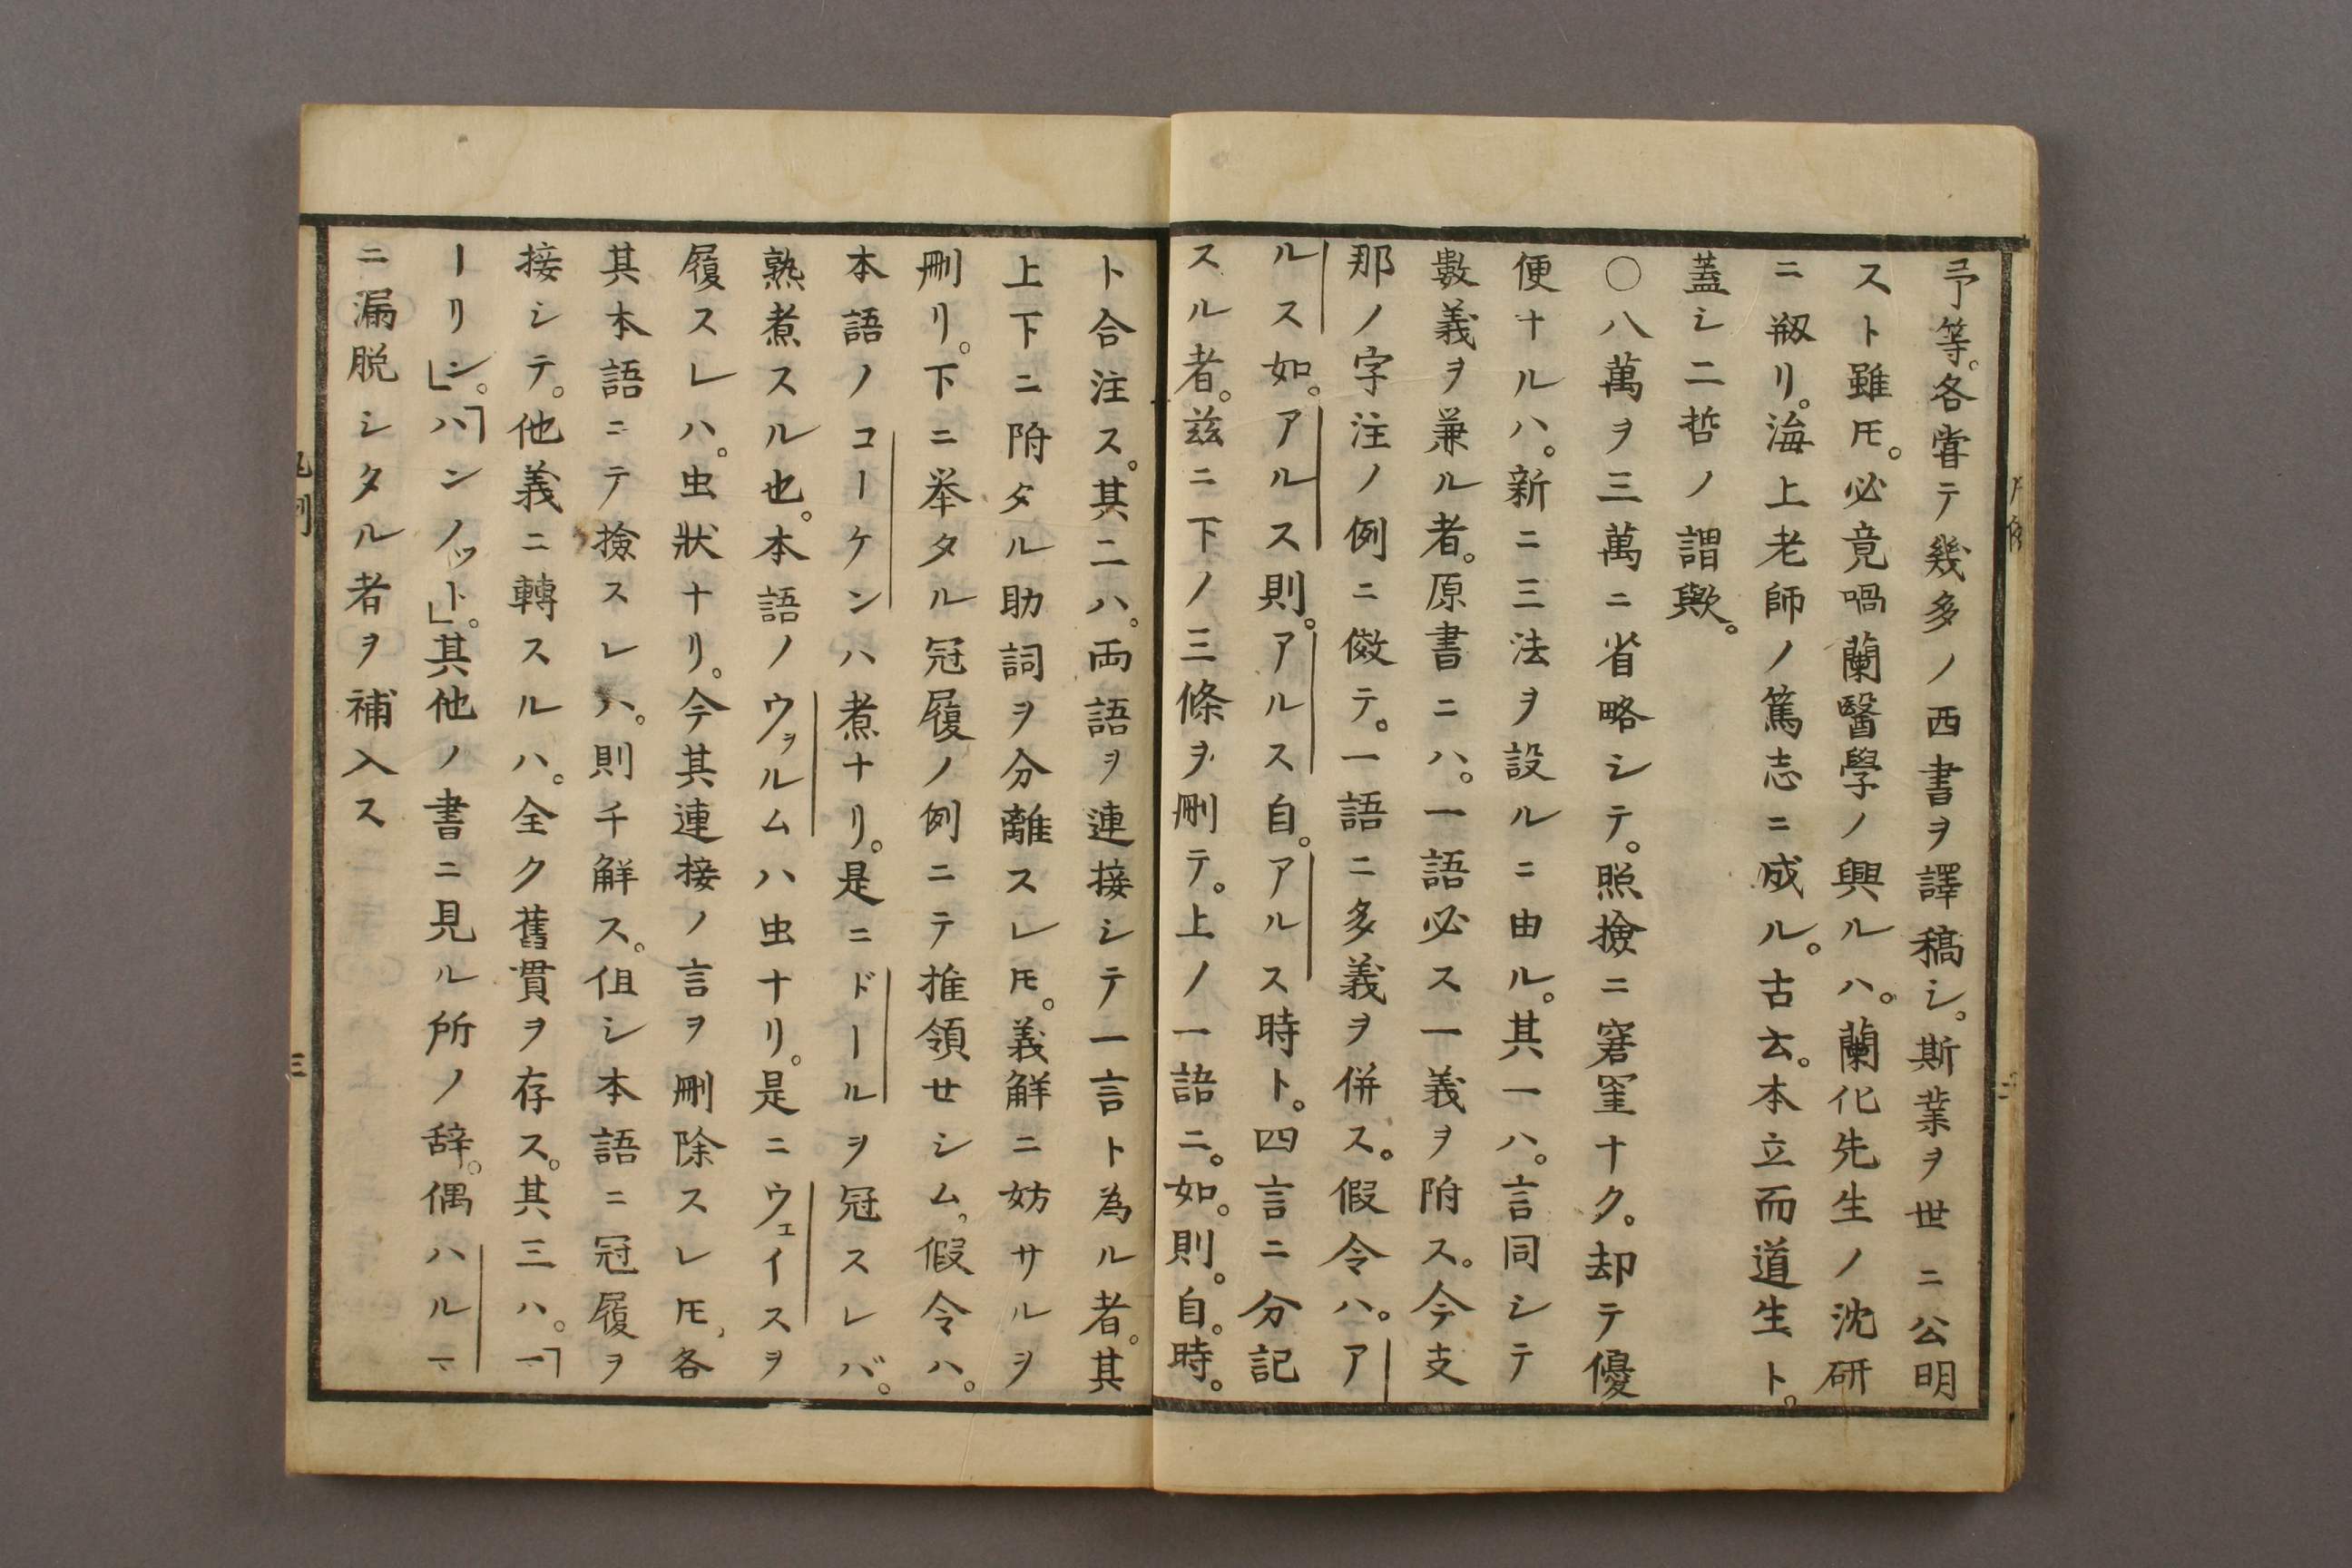 予等。各甞テ幾多ノ西書ヲ譯稿シ。斯業ヲ世ニ公明
スト雖𪜈。必竟喎蘭醫學ノ興ルハ。蘭化先生ノ沈研
ニ剏リ。海上老師ノ篤志ニ成ル。古云。本立而道生ト。
蓋シ二哲ノ謂歟。
○八萬ヲ三萬ニ省略シテ。照撿ニ窘窐ナク。却テ優
便ナルハ。新ニ三法ヲ設ルニ由ル。其一ハ。言同シテ
數義ヲ兼ル者。原書ニハ。一語必ス一義ヲ附ス。今支
那ノ字注ノ例ニ倣テ。一語ニ多義ヲ併ス。假令ハ。ア
ルス如。アルス則。アルス自。アルス時ト。四言ニ分記
スル者。茲ニ下ノ三條ヲ刪テ。上ノ一語ニ。如。則。自。時。
ト合注ス。其二ハ。両語ヲ連接シテ一言ト為ル者。其
上下ニ附タル助詞ヲ分離スレ𪜈。義解ニ妨サルヲ
刪リ。下ニ挙タル冠履ノ例ニテ推領セシム。假令ハ。
本語ノコーケンハ煮ナリ。是ニドールヲ冠スレバ。
熟煮スル也。本語ノウォルムハ虫ナリ。是ニウェイスヲ
履スレハ。虫状ナリ。今其連接ノ言ヲ刪除スレ𪜈、各
其本語ニテ撿スレハ。則千解ス。伹シ本語ニ冠履ヲ
接シテ。他義ニ轉スルハ。全ク舊貫ヲ存ス。其三ハ。「一
ーリン」。「ハンノット」。其他ノ書ニ見ル所ノ辞。偶ハルマ
ニ漏脱シタル者ヲ補入ス
凡例
三